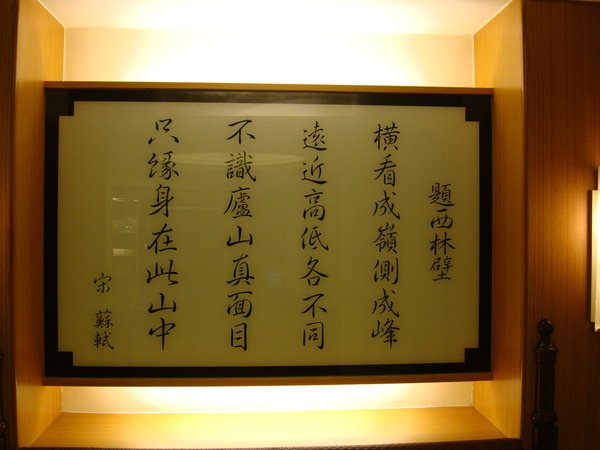 題西林壁
橫看成嶺側成峰
遠近高低各不同
不識廬山真面目
只緣身在此山中
宋 蘇軾